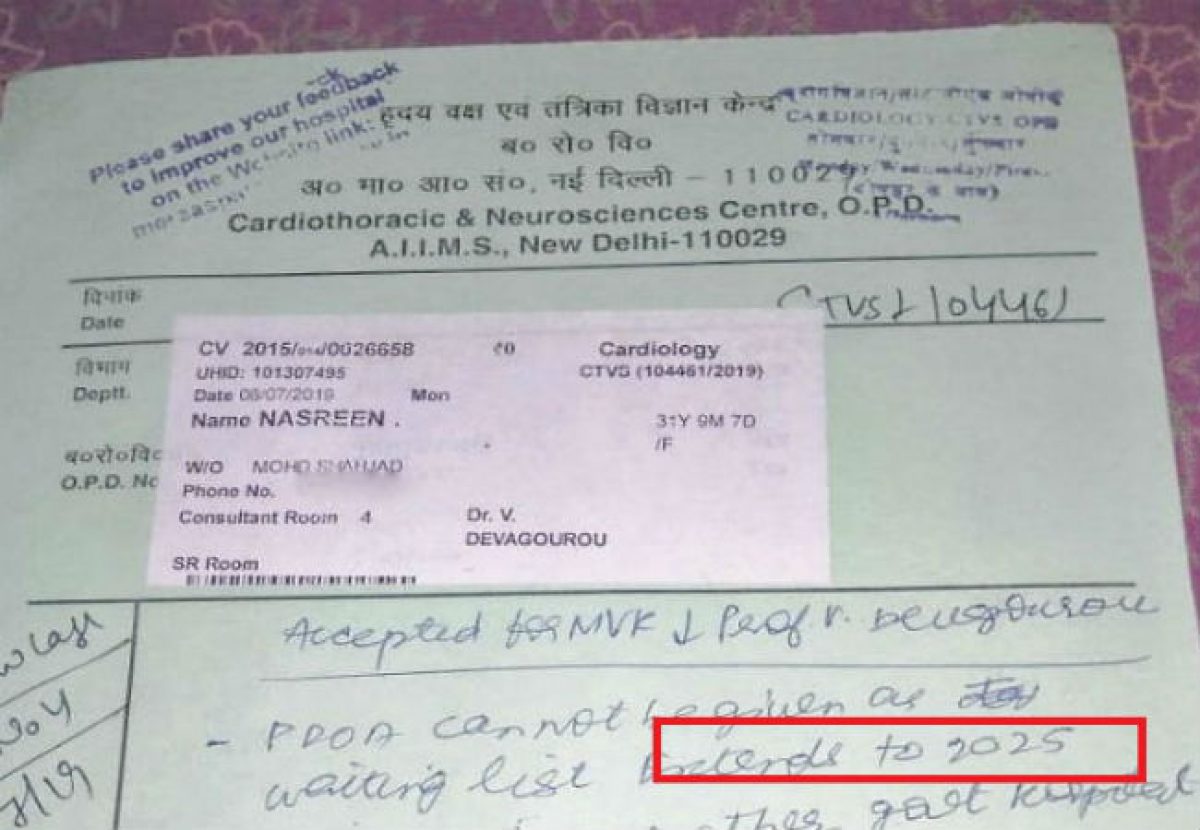 Please share your feedback
to improve our hospital
on the link:
हृदय वक्ष एवं तन्त्रिका विज्ञान केन्द्र
ब० रो० वि०
अ० भा० आ० सं०, नई दिल्ली – 110029
Cardiothoracic & Neurosciences Centre, O.P.D.
A.I.I.M.S., New Delhi-110029
CARDIOLOGY CTVS OPD
दिनांक
Date
CTVS 104461
विभाग
Deptt.
ब०रो०वि०
O.P.D. No
CV 2015/014/0026658 ₹0 Cardiology
UHID: 101307495 CTVS (104461/2019)
Date 08/07/2019 Mon
Name NASREEN . 31Y 9M 7D
/F
W/O MOHD SHAHJAD
Phone No.
Consultant Room 4 Dr. V.
DEVAGOUROU
SR Room
Accepted for Prof V. Devgourou
- cannot be given as
waiting list Extends to 2025
govt hospital